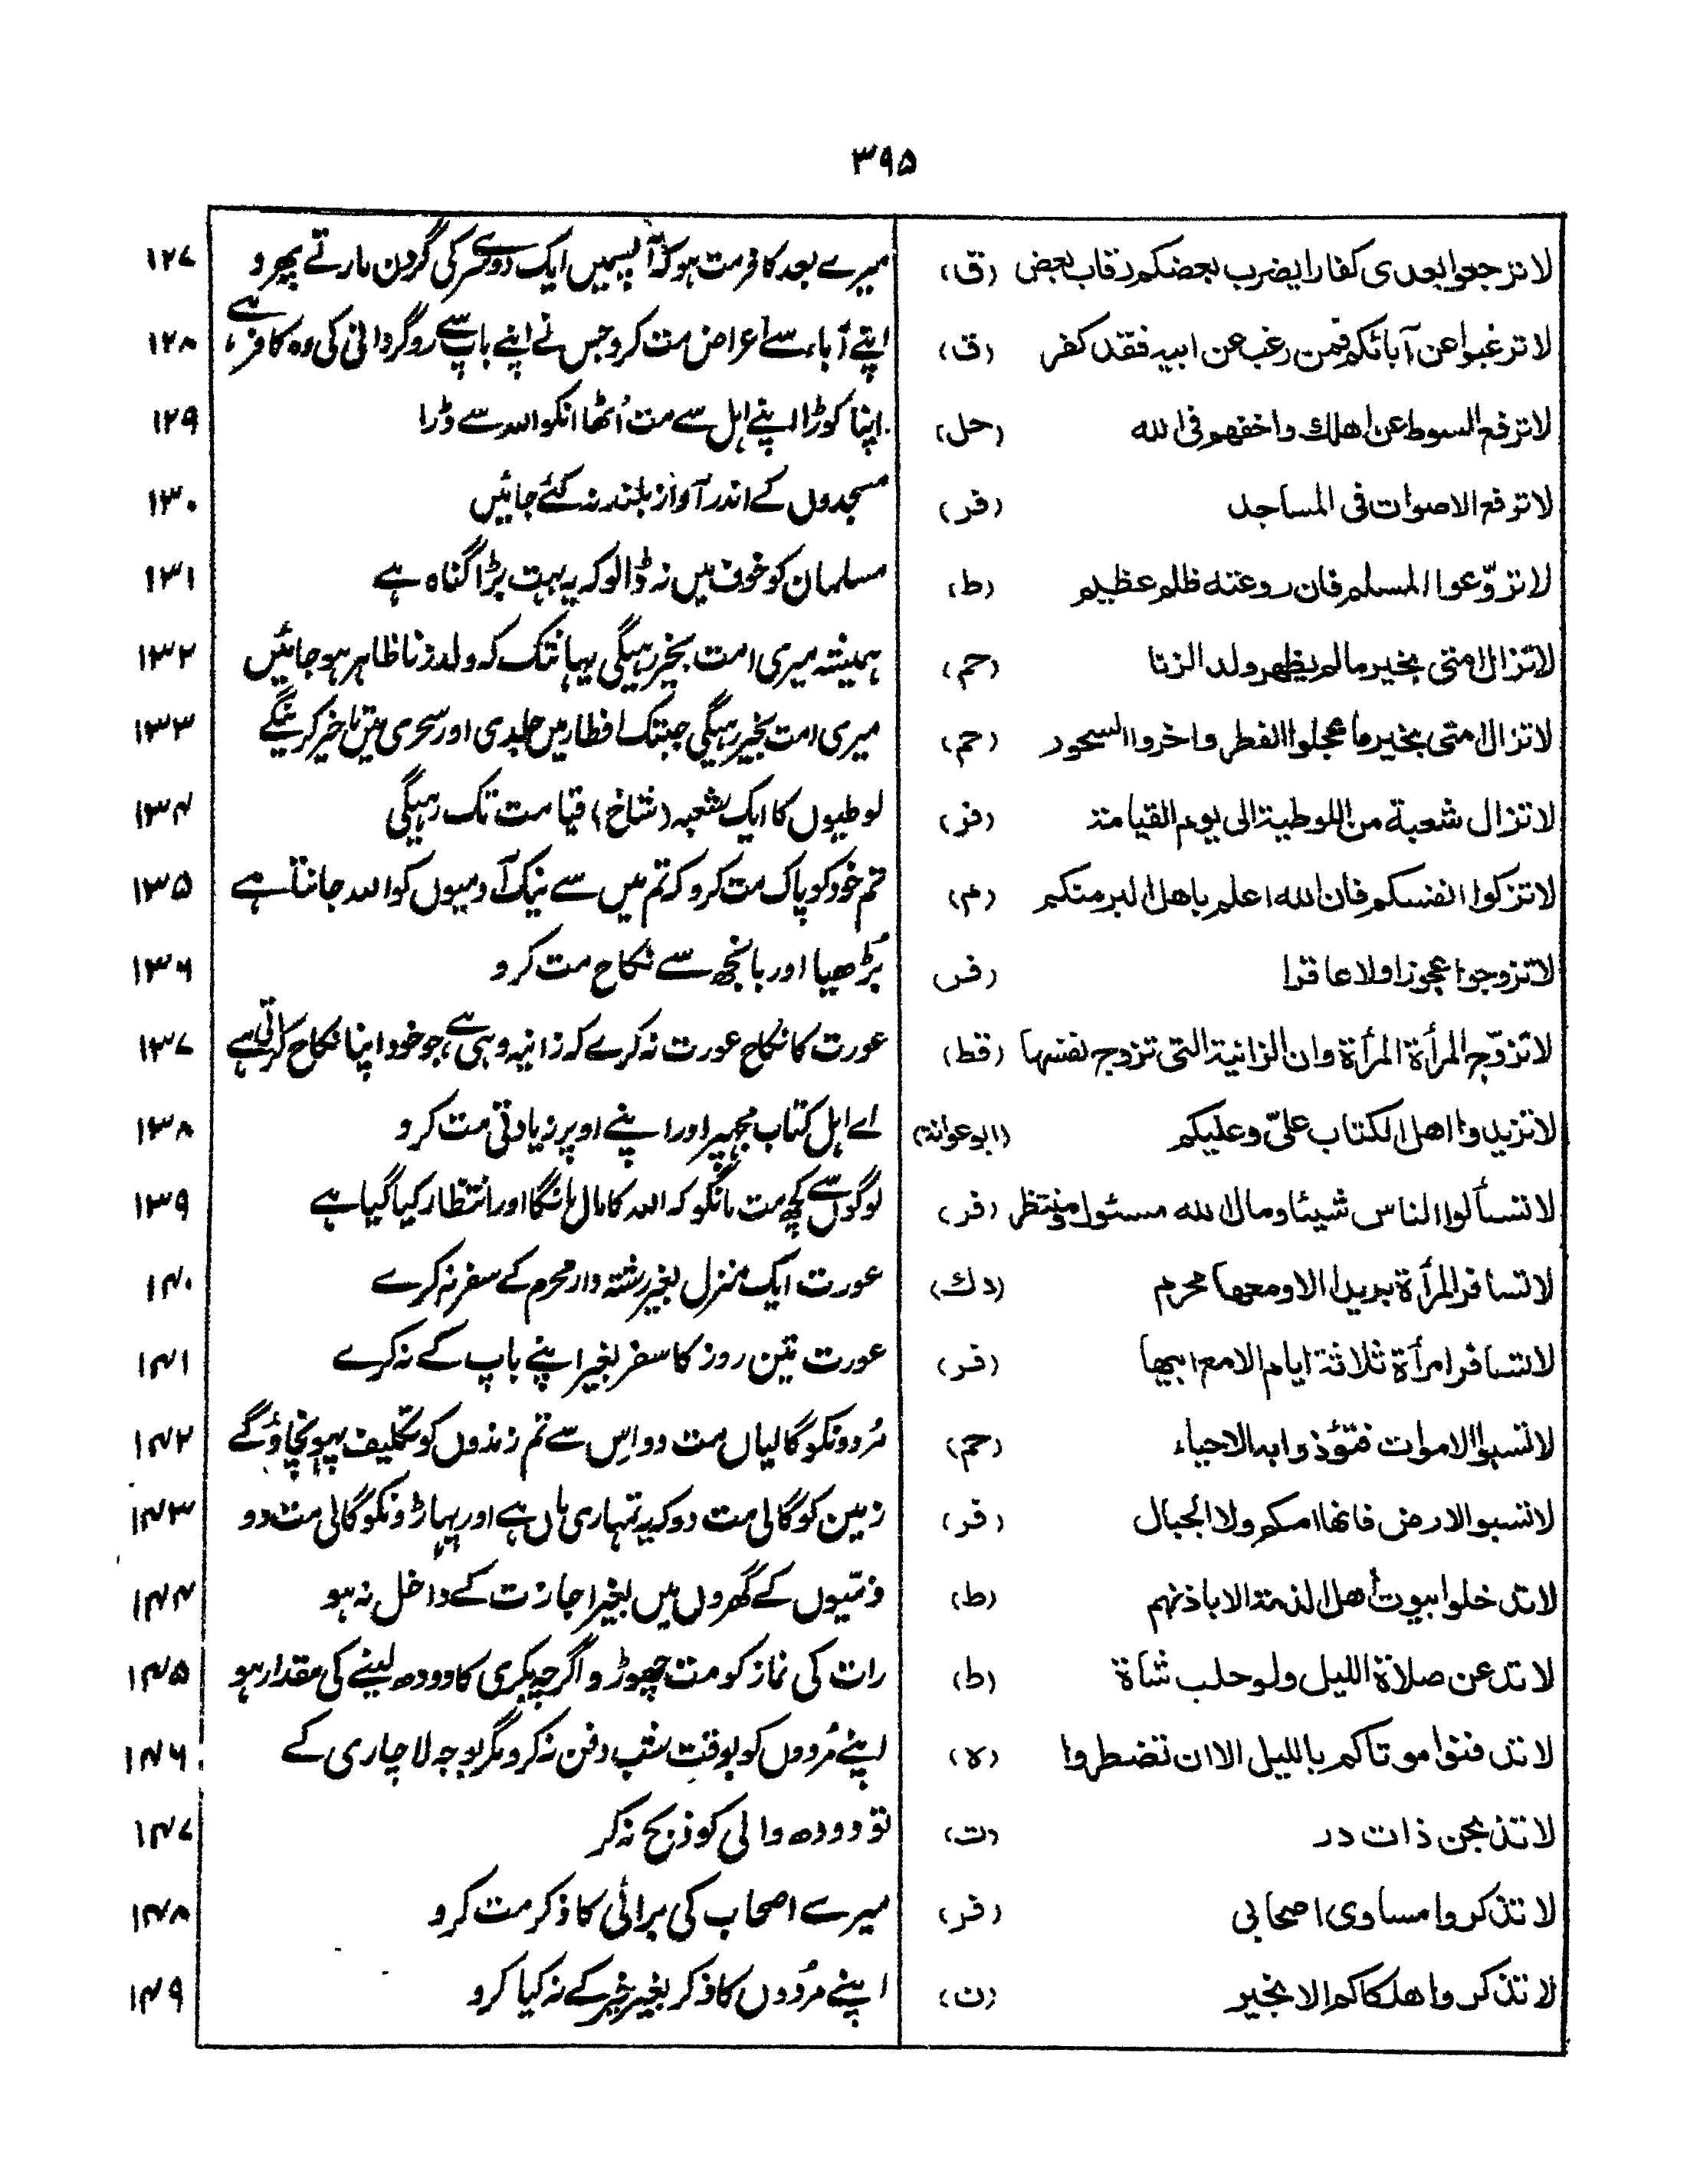 ۳۹۵
لا ترجعوا بعدی کفارا یضرب بعضکم رقاب بعض (ق) میرے بعد کافر مت ہو کہ آپسمیں ایک دوسرے کی گردن مارتے پھرو ۱۲۷
لا ترغبوا عن آبائکم فمن رغب عن ابیہ فقد کفر (ق) اپنے آباء سے اعراض مت کرو جس نے اپنے باپ سے روگردانی کی وہ کافر ہے، ۱۲۸
لا ترفع السوط عن اھلك واخفھم فی اللہ (حل) اپنا کوڑا اپنے اہل سے مت اُٹھا انکو اللہ سے ڈرا ۱۲۹
لا ترفع الاصوات فی المساجد (فر) مسجدوں کے اندر آواز بلند نہ کئے جائیں ۱۳۰
لا تروّعوا المسلم فان روعتہ ظلم عظیم (ط) مسلمان کو خوف میں نہ ڈالو کہ یہ بہت بڑا گناہ ہے ۱۳۱
لا تزال امتی بخیر مالم یظھر ولد الزنا (حم) ہمیشہ میری امت بخیر رہیگی یہانتک کہ ولد زنا ظاہر ہو جائیں ۱۳۲
لا تزال امتی بخیر ما عجلوا الفطر واخروا السحور (حم) میری امت بخیر رہیگی جبتک افطار میں جلدی اور سحری میں تاخیر کرینگے ۱۳۳
لا تزال شعبة من اللوطیة الی یوم القیامة (فر) لوطیوں کا ایک شعبہ (شاخ) قیامت تک رہیگی ۱۳۴
لا تزکوا انفسکم فان اللہ اعلم باھل البر منکم (م) تم خود کو پاک مت کرو کہ تم میں سے نیک آدمیوں کو اللہ جانتا ہے ۱۳۵
لا تزوجوا عجوزا ولا عاقرا (فر) بُڑھیا اور بانجھ سے نکاح مت کرو ۱۳۶
لا تزوّج المرأة المرأة وان الزانیة التی تزوج نفسھا (قط) عورت کا نکاح عورت نہ کرے کہ زانیہ وہی ہے، جو خود اپنا نکاح کرتی ہے ۱۳۷
لا تزیدوا اھل الکتاب علیّ وعلیکم (ابو عوانہ) اے اہل کتاب مجھپر اور اپنے اوپر زیادتی مت کرو ۱۳۸
لا تسألوا الناس شیئا ومال اللہ مسئول ومنتظر (فر) لوگوں سے کچھ مت مانگو کہ اللہ کا مال مانگا اور انتظار کیا گیا ہے ۱۳۹
لا تسافر المرأة بریدا الا ومعھا محرم (دك) عورت ایک منزل بغیر رشتہ دار محرم کے سفر نہ کرے ۱۴۰
لا تسافر امرأة ثلاثة ایام الا مع ابیھا (فر) عورت تین روز کا سفر بغیر اپنے باپ کے نہ کرے ۱۴۱
لا تسبوا الاموات فتؤذوا بہ الاحیاء (حم) مُردونکو گالیاں مت دو اس سے تم زندوں کو تکلیف پہونچاؤ گے ۱۴۲
لا تسبوا الارض فانھا امکم ولا الجبال (فر) زمین کو گالی مت دو کہ یہ تمہاری ماں ہے اور پہاڑونکو گالی مت دو ۱۴۳
لا تدخلوا بیوت أھل الذمة الا باذنھم (ط) ذمّیوں کے گھروں میں بغیر اجازت کے داخل نہ ہو ۱۴۴
لا تدعن صلاة اللیل ولو حلب شاة (ط) رات کی نماز کو مت چھوڑو اگرچہ بکری کا دودھ لینے کی مقدار ہو ۱۴۵
لا تدفنوا موتاکم باللیل الا ان تضطروا (ہ) اپنے مُردوں کو بوقت شب دفن نہ کرو مگر بوجہ لاچاری کے ۱۴۶
لا تذبحن ذات در (ت) تو دودھ والی کو ذبح نہ کر ۱۴۷
لا تذکروا مساوی اصحابی (فر) میرے اصحاب کی برائی کا ذکر مت کرو ۱۴۸
لا تذکروا ھلکاکم الا بخیر (ن) اپنے مُردوں کا ذکر بغیر خیر کے نہ کیا کرو ۱۴۹